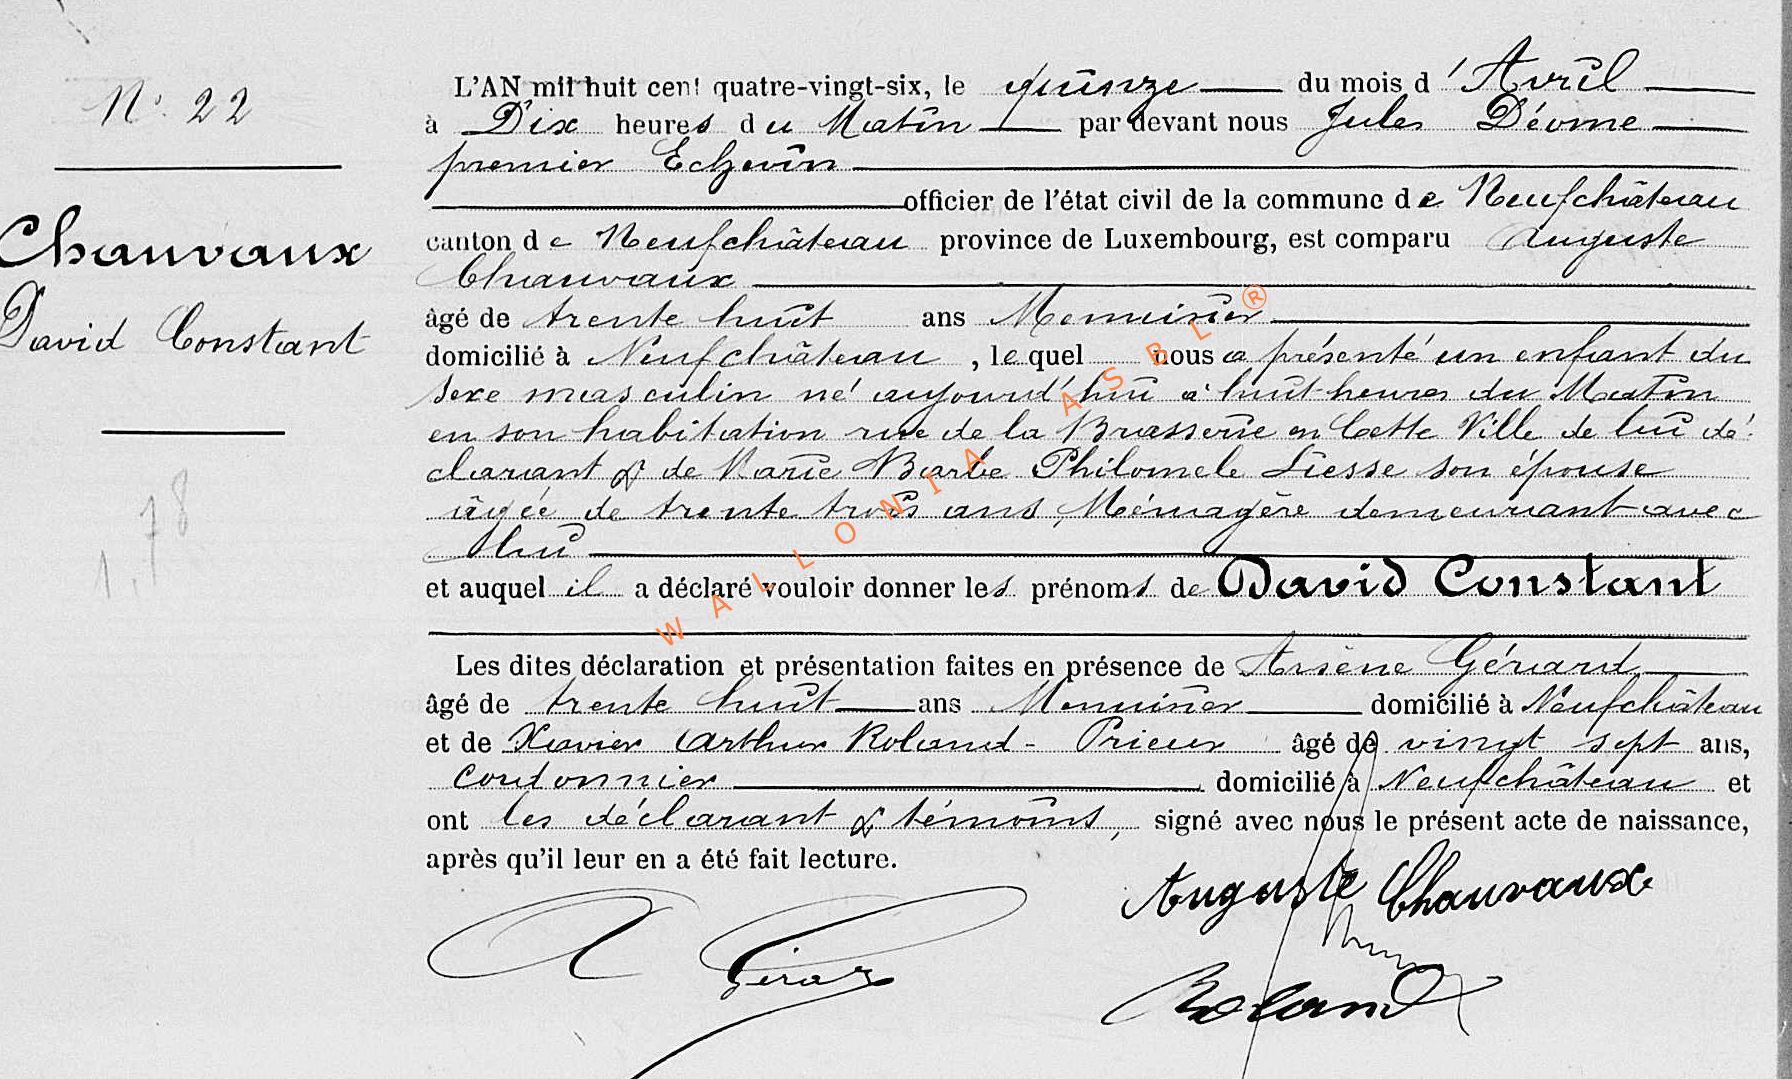 N° 22
Chauvaux
David Constant
1,78
L'AN mil huit cent quatre-vingt-six, le quinze du mois d'Avril
à Dix heures du Matin par devant nous Jules Déome
premier Echevin
officier de l'état civil de la commune de Neufchâteau
canton de Neufchâteau province de Luxembourg, est comparu Auguste
Chauvaux
âgé de trente huit ans Menuisier
domicilié à Neufchâteau, lequel nous a présenté un enfant du
sexe masculin né aujourd'hui à huit heures du Matin
en son habitation rue de la Brasserie en Cette Ville de lui dé-
clarant & de Marie Barbe Philomele Liesse son épouse
âgée de trente trois ans, Ménagère demeurant avec
lui
et auquel il a déclaré vouloir donner les prénoms de David Constant
Les dites déclaration et présentation faites en présence de Arsène Gérard
âgé de trente huit ans Menuisier domicilié à Neufchâteau
et de Xavier Arthur Roland-Prieur âgé de vingt sept ans,
cordonnier domicilié à Neufchâteau et
ont les déclarant & témoins, signé avec nous le présent acte de naissance,
après qu'il leur en a été fait lecture.
Auguste Chauvaux
A Gérar
Roland
WALLONIA ASBL ®